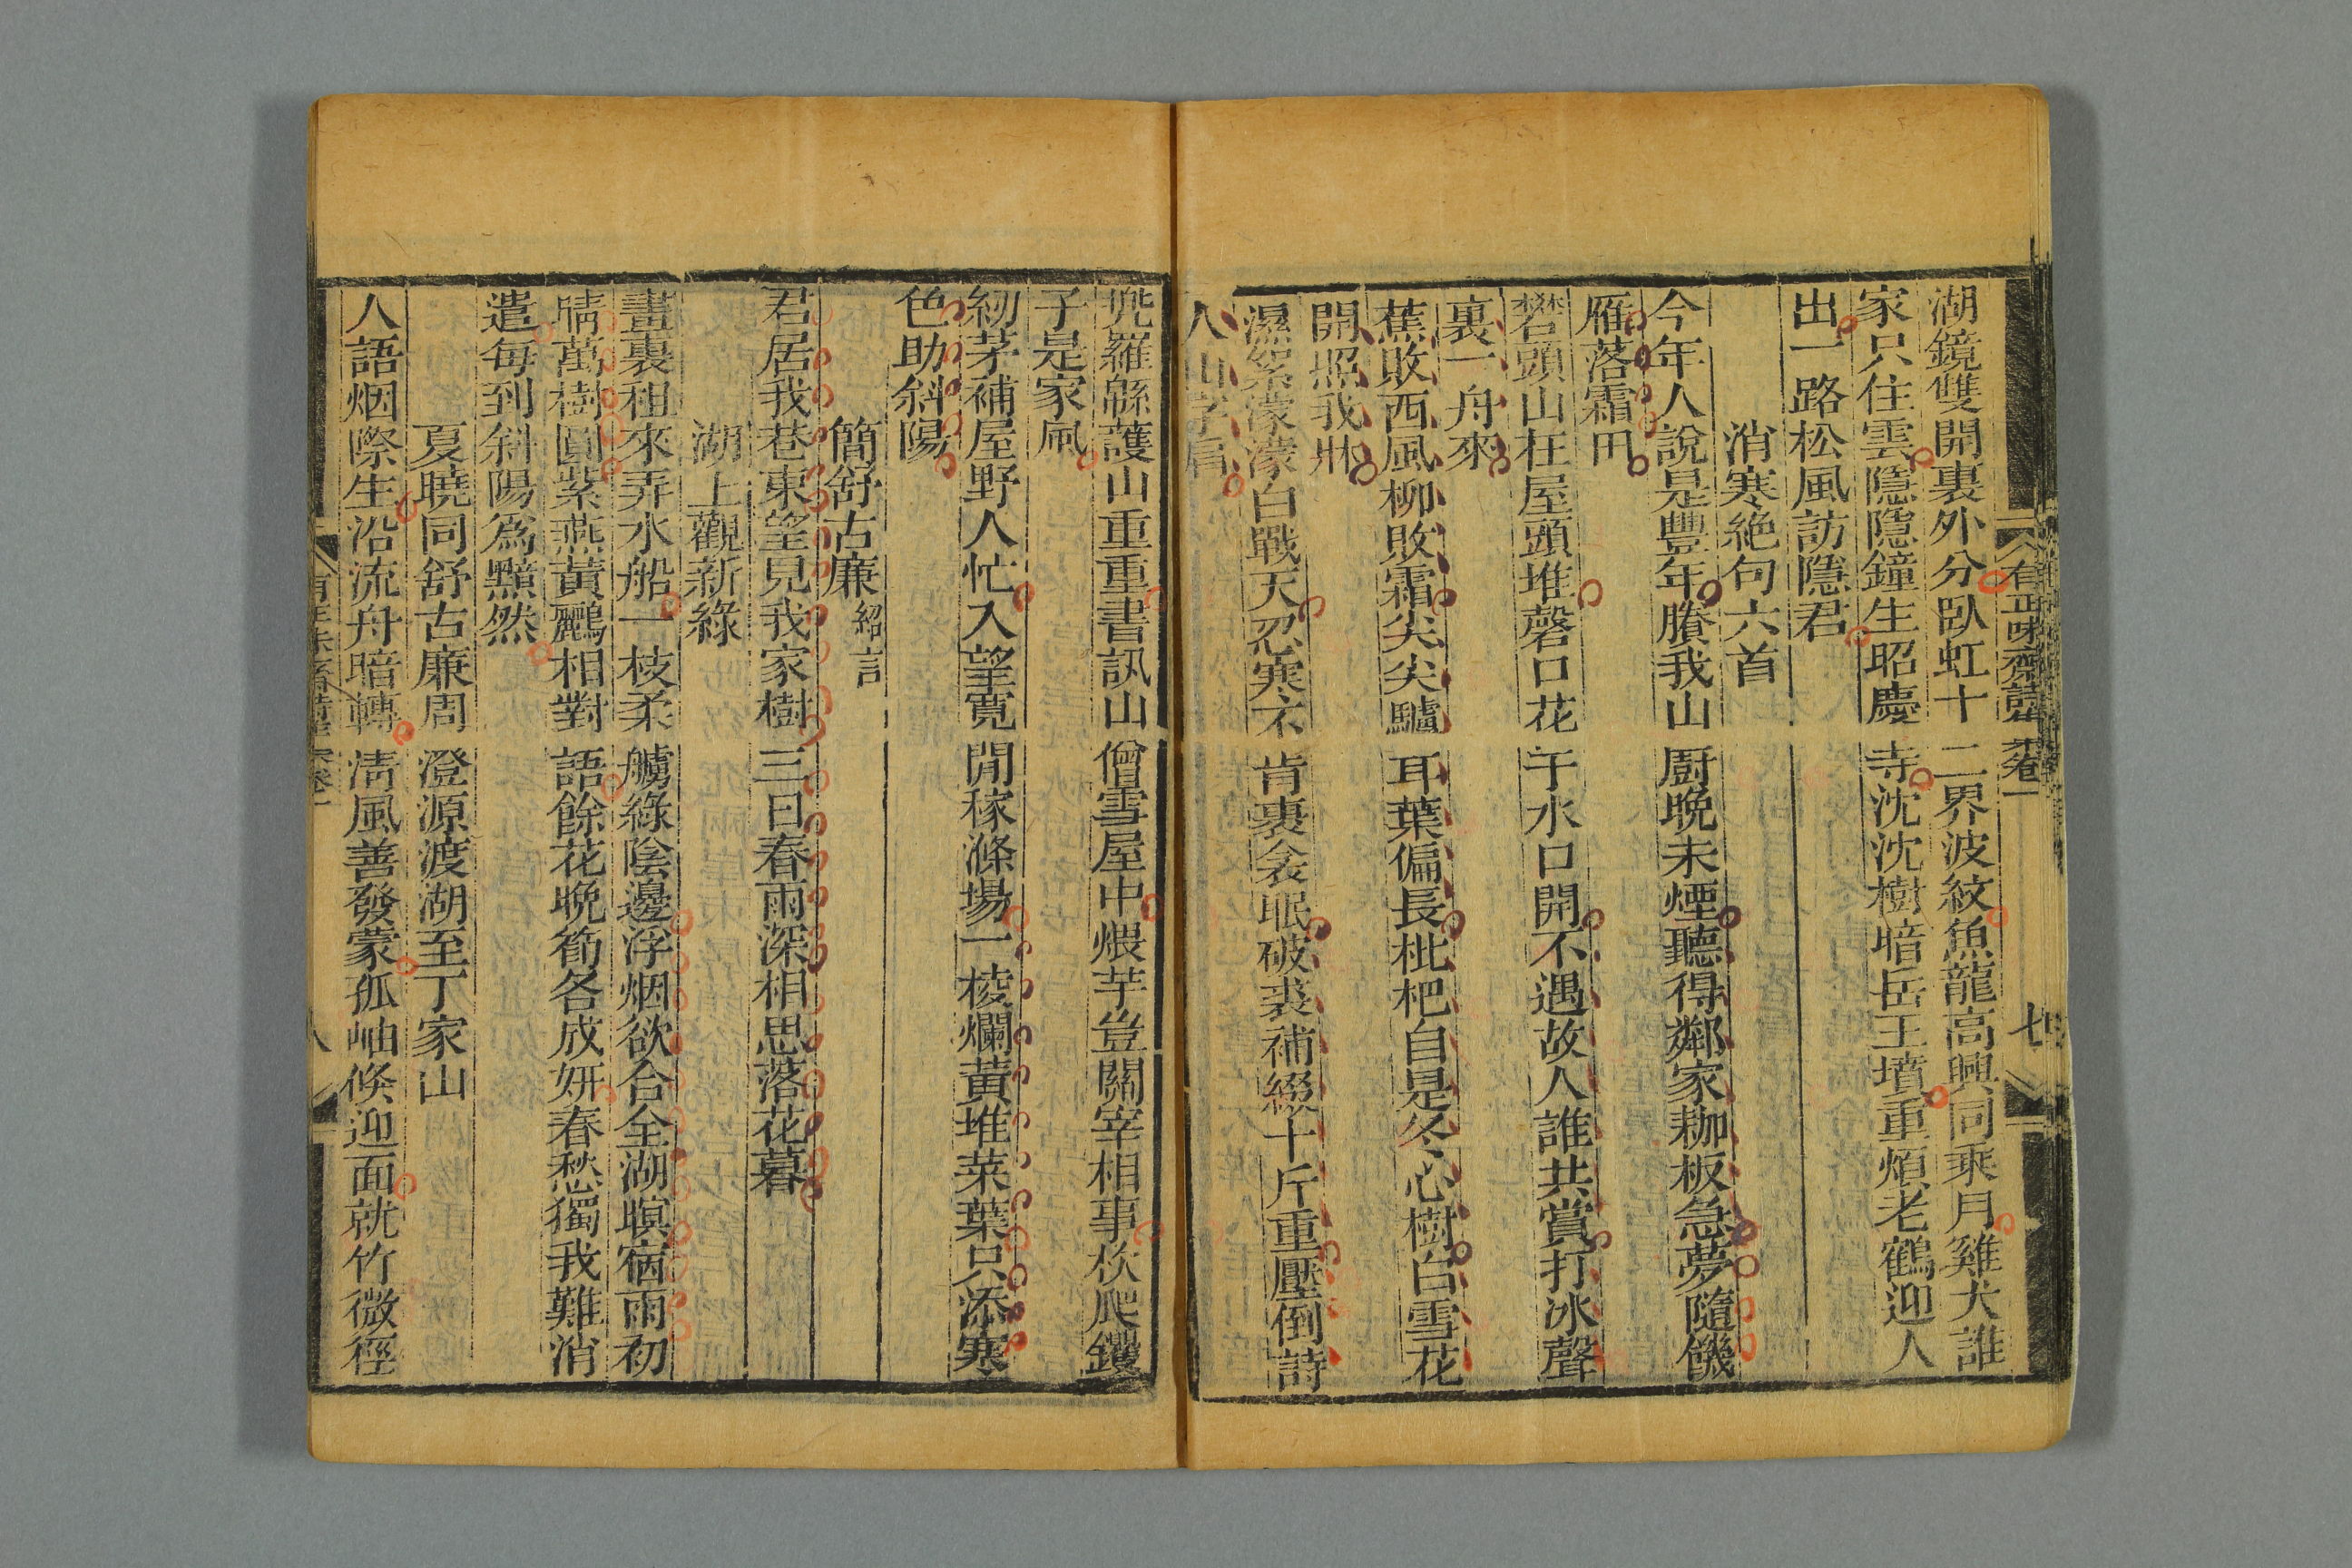 有正味齋詩 卷一 七
湖鏡雙開裏外分臥虹十二界波紋魚龍高興同乘月雞犬誰
家只住雲隱隱鐘生昭慶寺沈沈樹暗岳王墳重煩老鶴迎人
出一路松風訪隱君
消寒絶句六首
今年人說是豐年賸我山厨晩未煙聽得鄰家耞板急夢隨饑
雁落霜田
礬頭山在屋頭堆磬口花于水口開不遇故人誰共賞打冰聲
裏一舟來
蕉敗西風柳敗霜尖尖驢耳葉偏長枇杷自是冬心樹白雪花
開照我牀
濕絮濛濛白戰天忍寒不肯裹衾眠破裘補綴十斤重壓倒詩
人山字肩
兠羅緜䕶山重重書訊山僧雪屋中煨芋豈關宰相事杴爬钁
子是家風
紉茅補屋野人忙入望寛閒稼滌場一棱爛黃堆菜葉只添寒
色助斜陽
簡舒古廉紹言
君居我巷東望見我家樹三日春雨深相思落花暮
湖上觀新綠
畫裏租來弄水船一枝柔艣綠陰邊浮烟欲合全湖暝宿雨初
晴萬樹圓紫燕黃鸝相對語餘花晩筍各成妍春愁獨我難消
遣每到斜陽爲黯然
夏曉同舒古廉周澄源渡湖至丁家山
人語烟際生沿流舟暗轉淸風善發蒙孤岫倏迎面就竹微徑
有正味齋詩 卷一 八